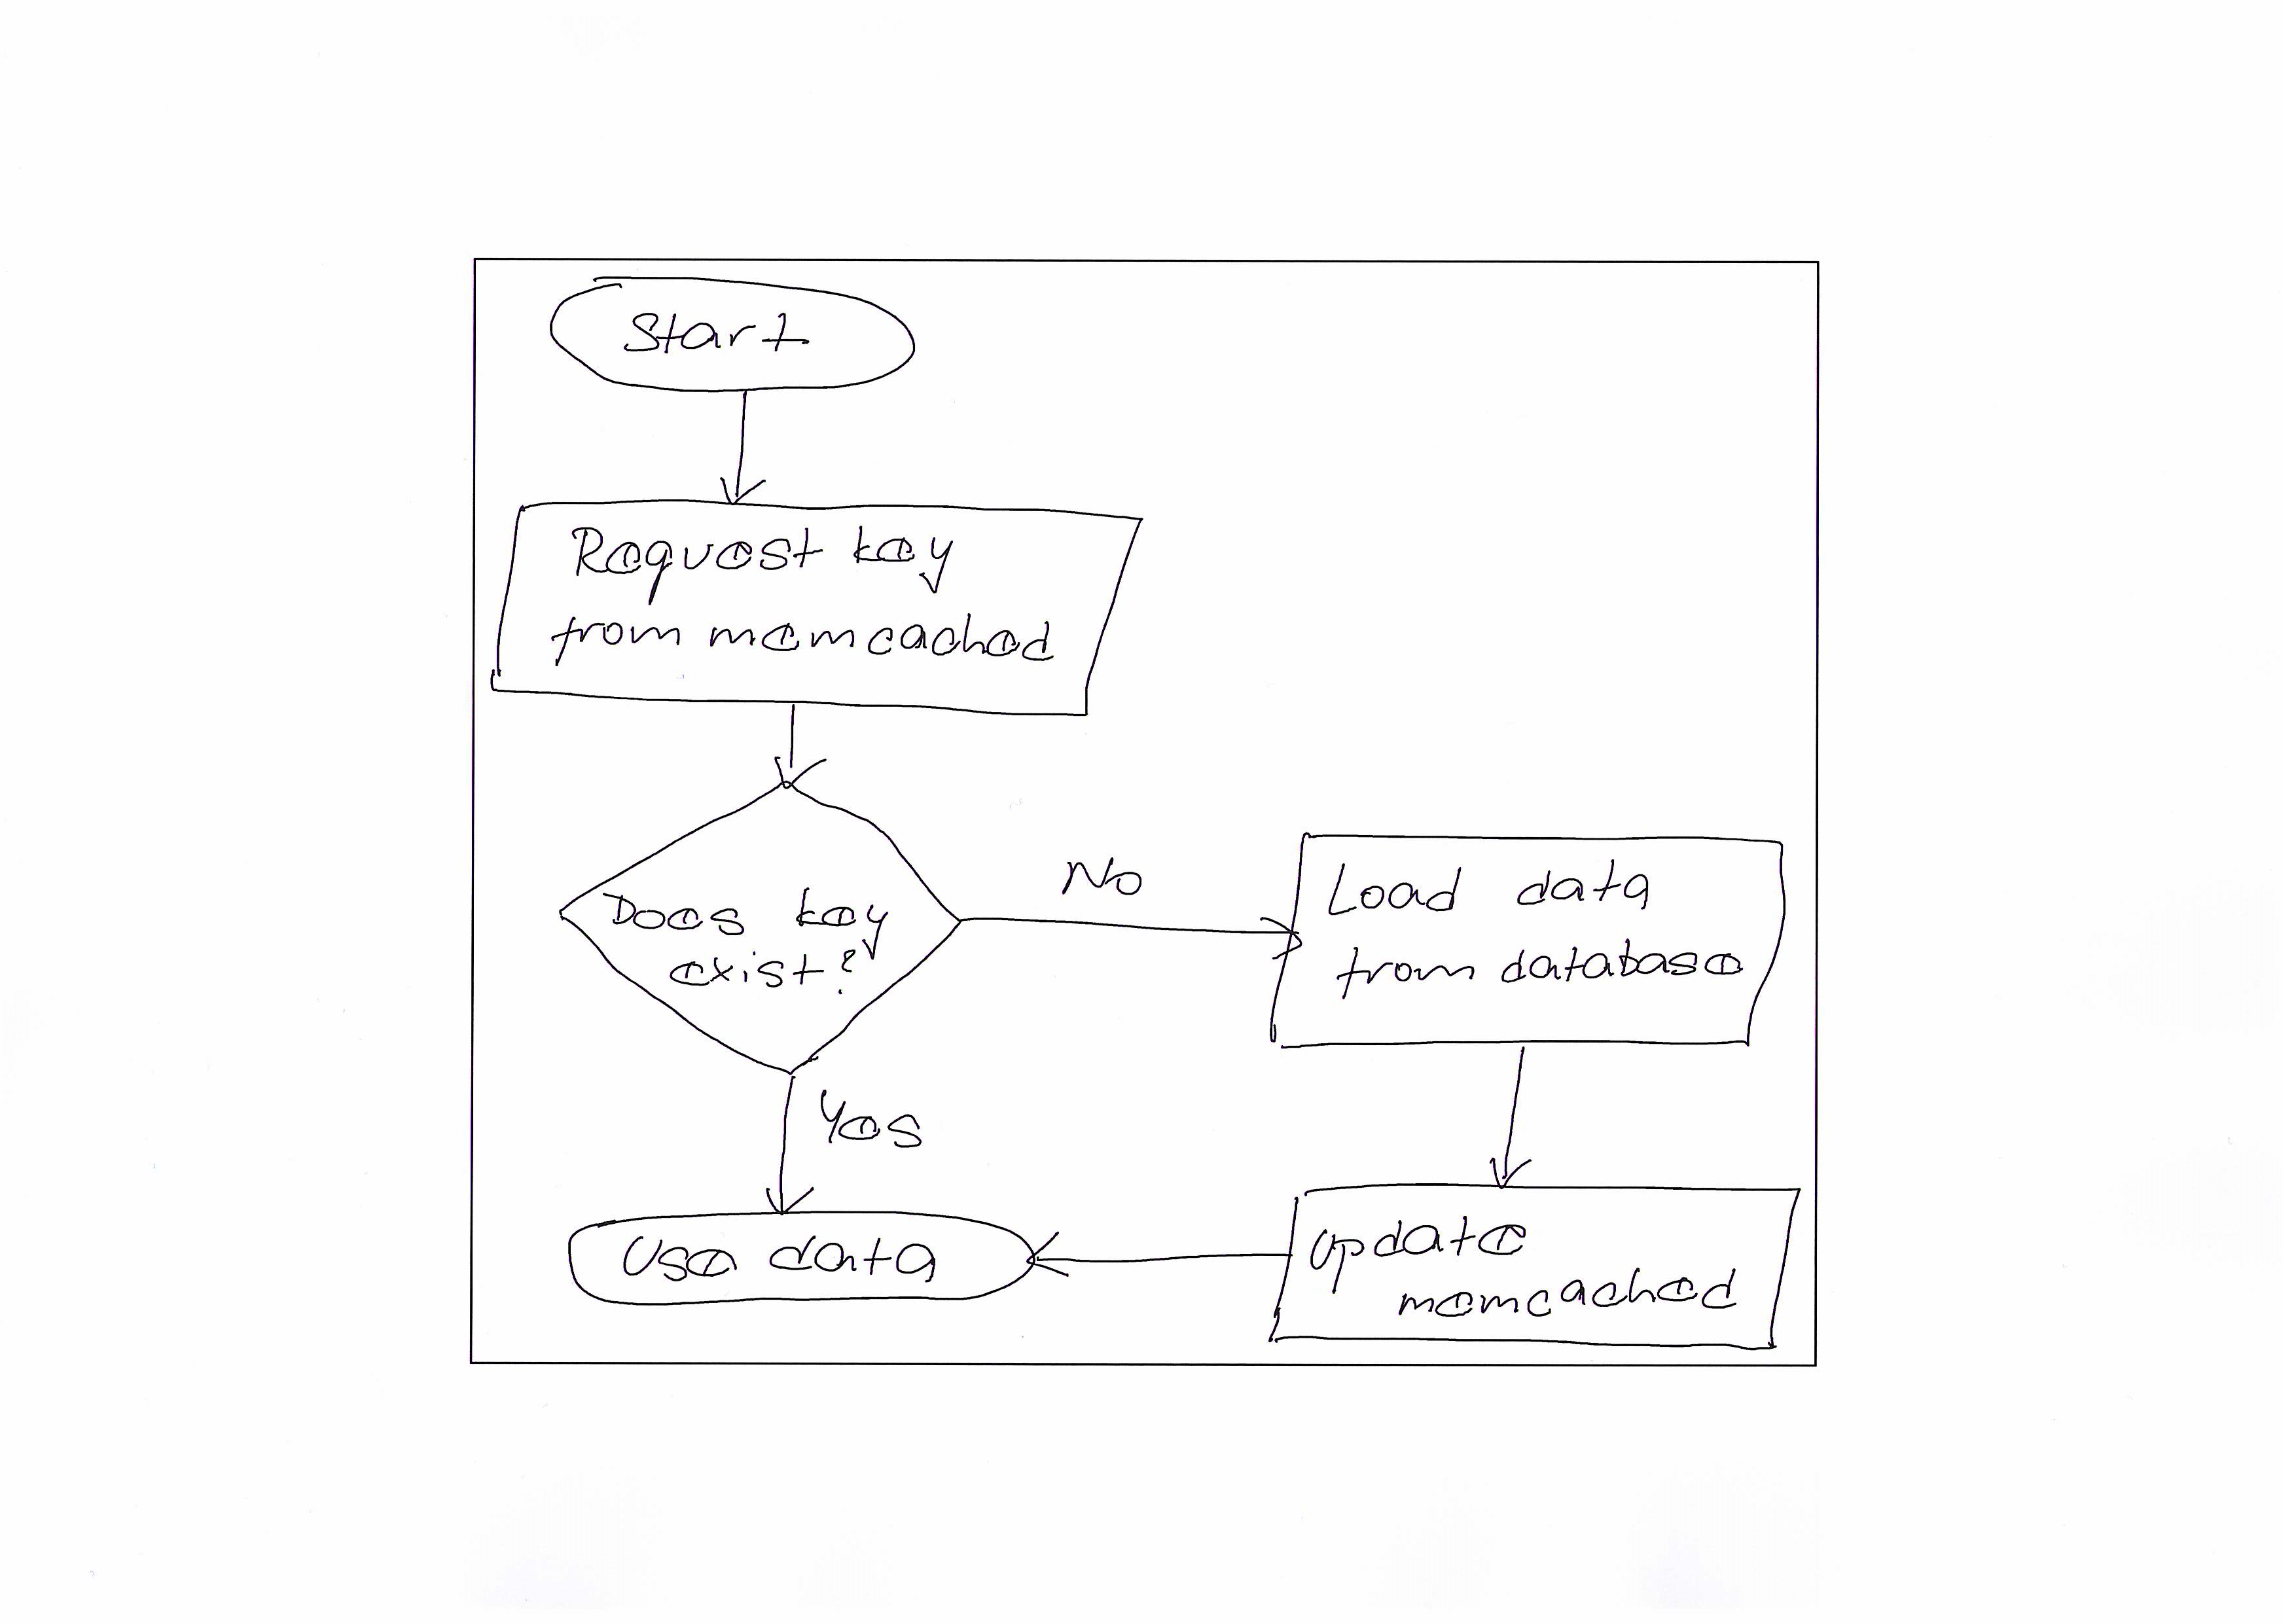 Start
Request key
from memcached
Does key
exist?
No
Load data
from database
Yes
Use data
Update
memcached